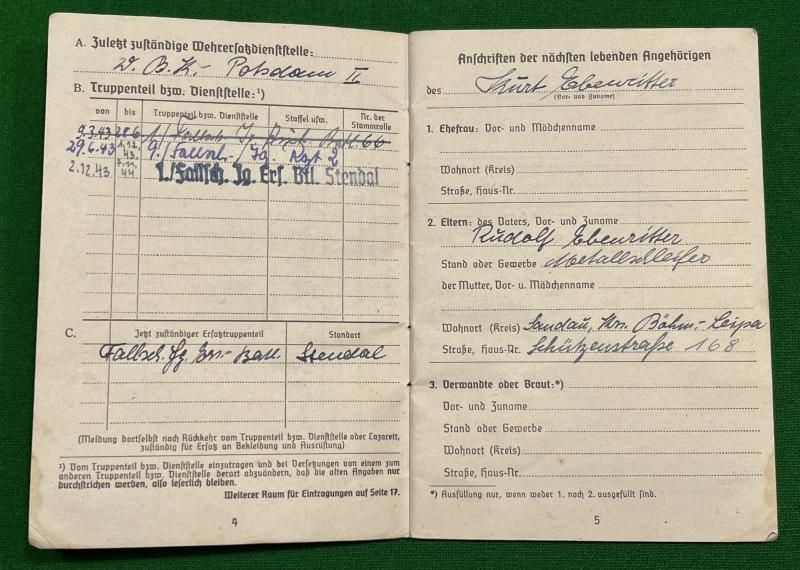 A. Zuletzt zuständige Wehrersatzdienststelle:
W. B. K. - Potsdam II
B. Truppenteil bzw. Dienststelle:¹)
von bis Truppenteil bzw. Dienststelle Staffel usw. Nr. der Stammrolle
9.3.43 28.6. 1./ Fallsch. Jg. 66
29.6.43 1.12.43. 9./ Fallsch. Jg. Rgt 2
2.12.43. 44 1./Fallsch. Jg. Ers. Btl. Stendal
C. Jetzt zuständiger Ersatztruppenteil Standort
Fallsch. Jg. Ers.- Batl. Stendal
(Meldung dortselbst nach Rückkehr vom Truppenteil bzw. Dienststelle oder Lazarett,
zuständig für Ersatz an Bekleidung und Ausrüstung)
¹) Vom Truppenteil bzw. Dienststelle einzutragen und bei Versetzungen von einem zum
anderen Truppenteil bzw. Dienststelle derart abzuändern, daß die alten Angaben nur
durchstrichen werden, also leserlich bleiben.
Weiterer Raum für Eintragungen auf Seite 17.
4
Anschriften der nächsten lebenden Angehörigen
des Kurt Ebenritter
(Vor- und Zuname)
1. Ehefrau: Vor- und Mädchenname
Wohnort (Kreis)
Straße, Haus-Nr.
2. Eltern: des Vaters, Vor- und Zuname
Rudolf Ebenritter
Stand oder Gewerbe Metallschleifer
der Mutter, Vor- u. Mädchenname
Wohnort (Kreis) Sandau, Krs. Böhm.- Leipa
Straße, Haus-Nr. Schützenstraße 168
3. Verwandte oder Braut:*)
Vor- und Zuname
Stand oder Gewerbe
Wohnort (Kreis)
Straße, Haus-Nr.
*) Ausfüllung nur, wenn weder 1. noch 2. ausgefüllt sind.
5